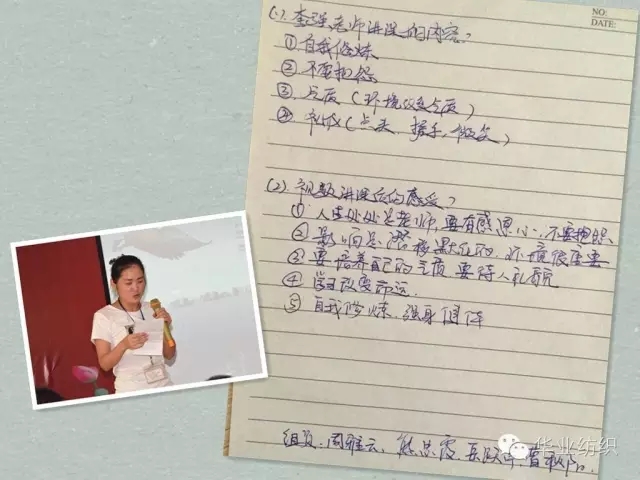 NO:
DATE:
(1).李强老师讲课的内容?
①自我修炼
②不要抱怨
③气质(环境改变气质)
④礼仪(点头、握手、微笑)
(2)视频讲课后的感受?
①人生处处是老师,要有感恩心、不要抱怨
②影响是潜移默化的,环境很重要
③要培养自己的气质 要待人礼貌
④学习改变命运.
⑤自我修炼.强身健体
组员:周雅云、熊忠霞
华业纺织